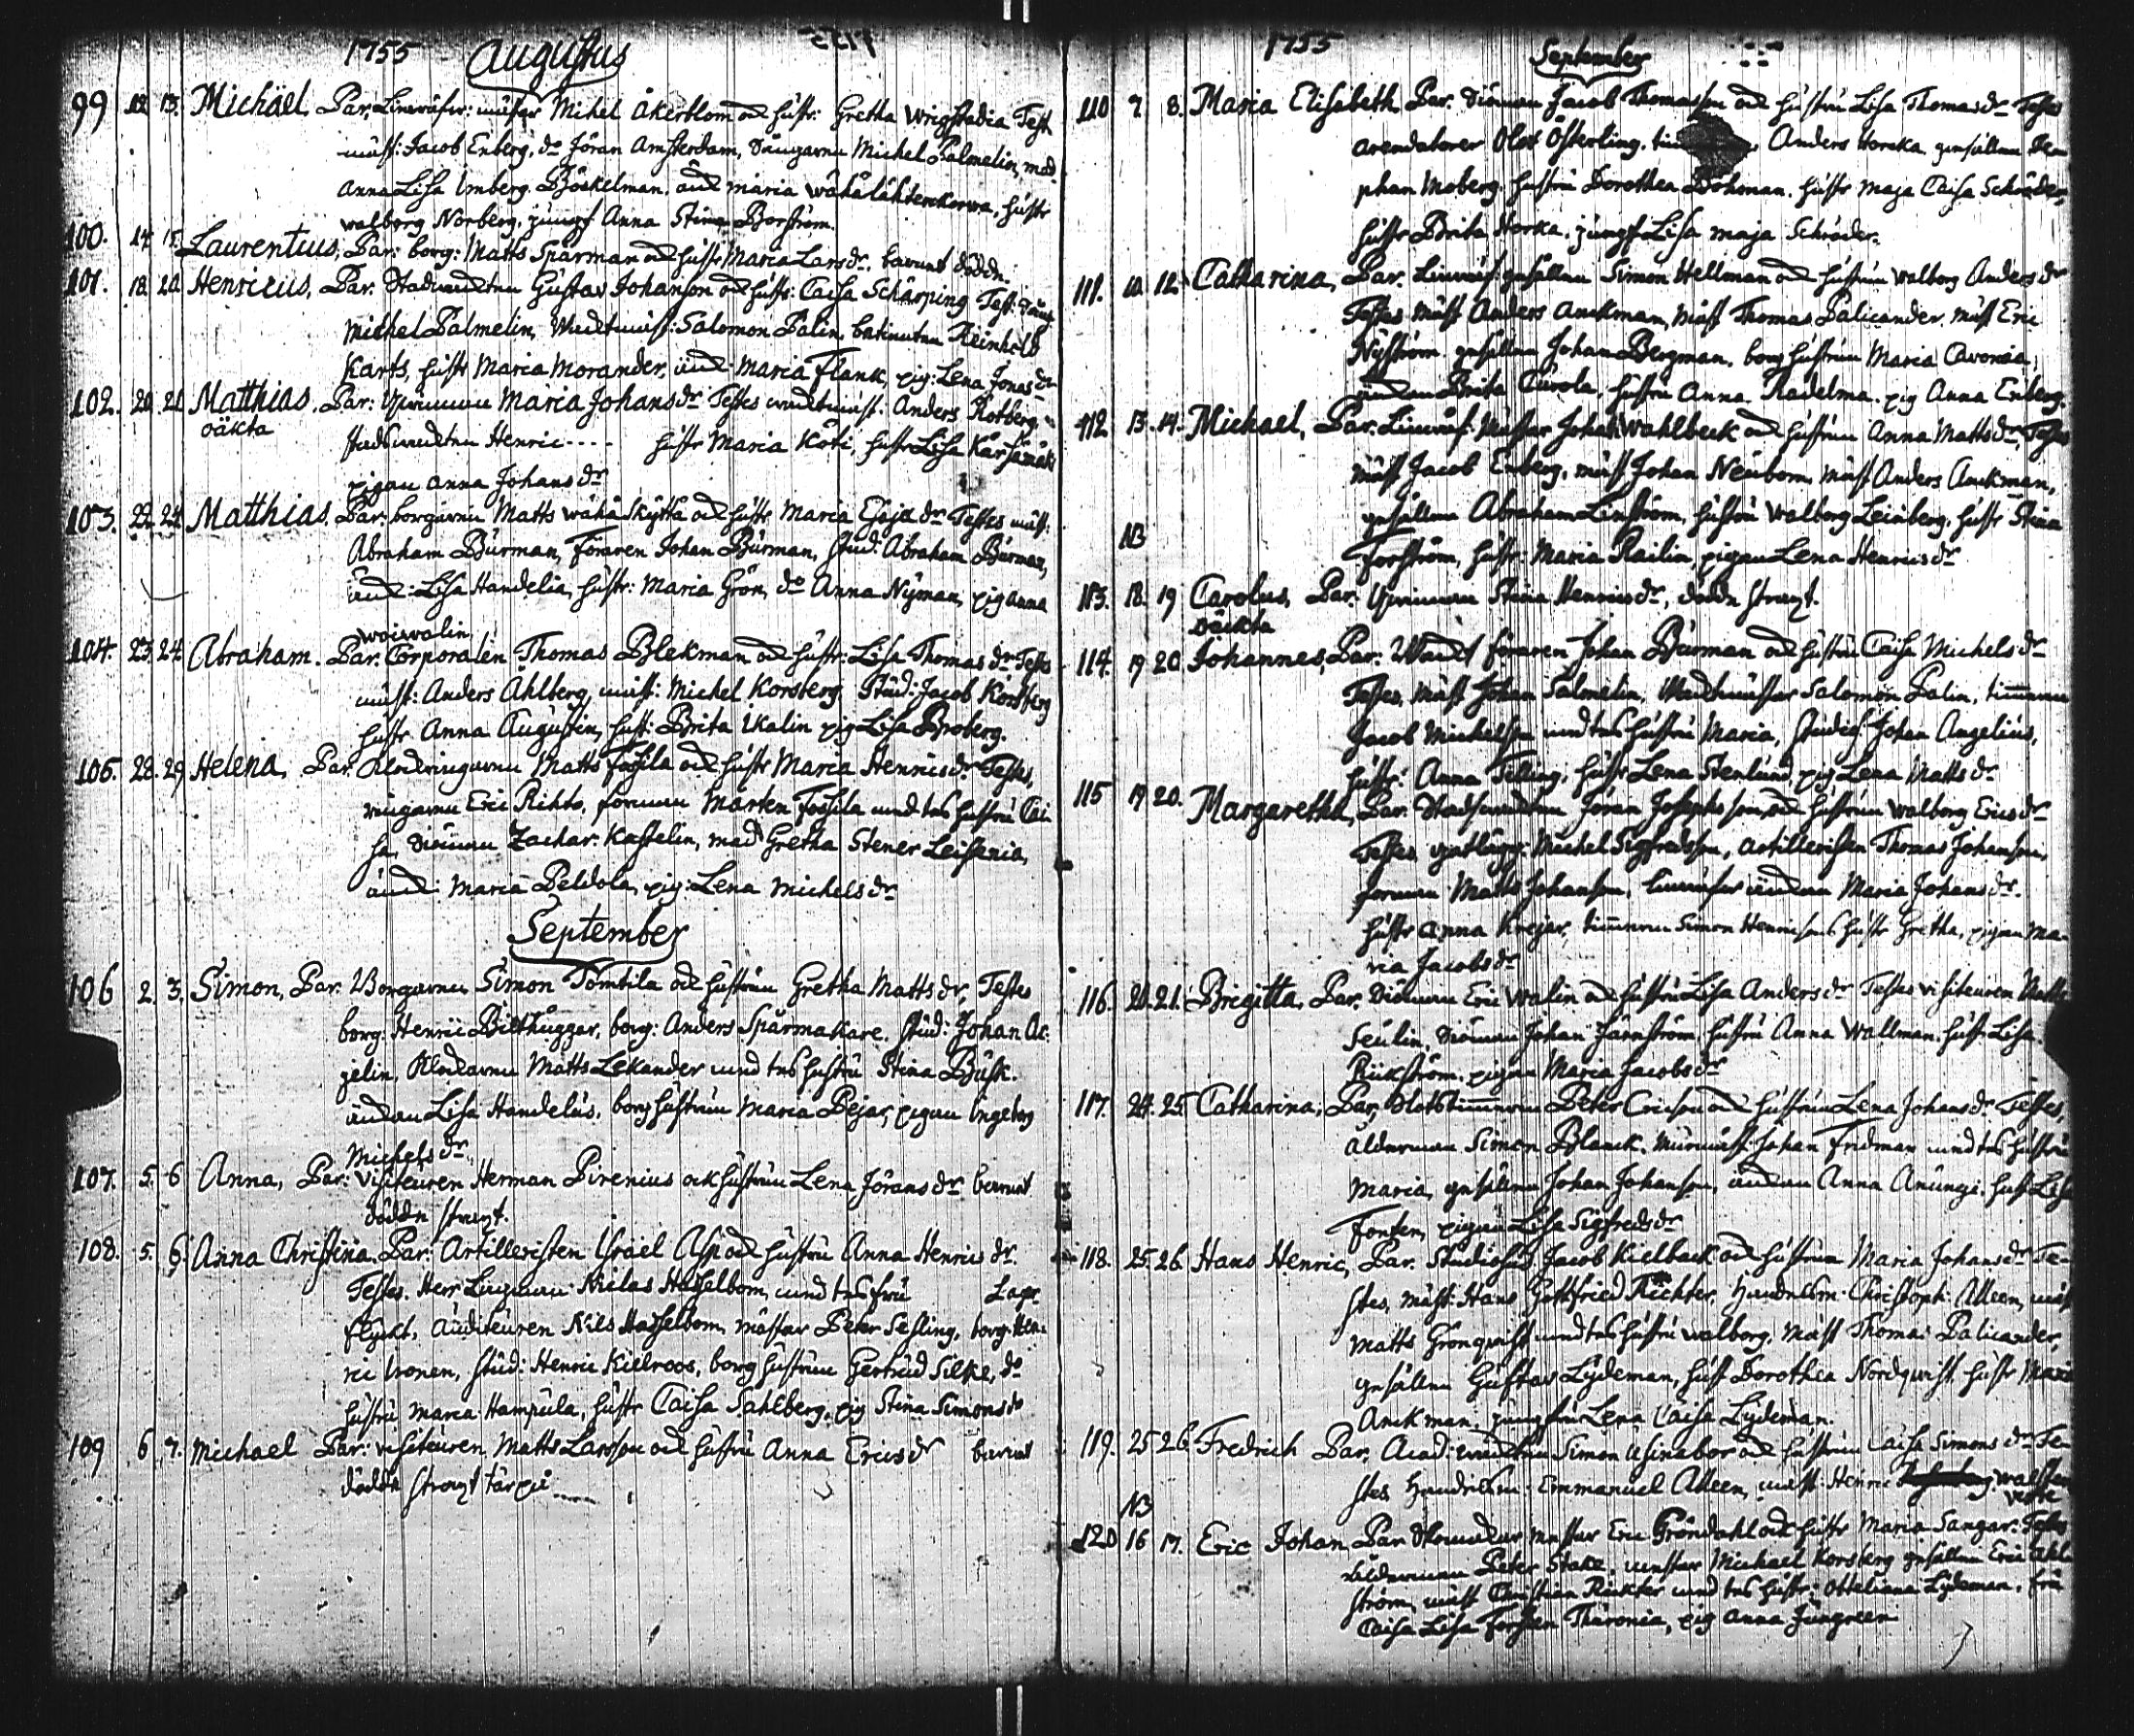 1755 Augustus
99 12. 13. Michäel. Par. Linwäfver: mästar Mihel Åkerblom och hustr: Gretha Wrigstadia Test
mäst: Jacob Enberg, do Jöran Amsterdam, Michel Palmelin, mad.
Anna Lisa Imberg. Böökelman. änck maria wähälähtenkorwa, hustr
walborg Norberg. jungf Anna Stina Borström.
100. 14. 15. Laurentius, Par: borg: Matts Spärman och hustr Maria Larsdr. barnet döddt.
101. 18. 20. Henricus, Par. Stadsvackten Gustav Johanson och hustr: Caisa Schärping Test:
Michel Palmelin, mäst: Salomon Palin, Reinhold
Karts, hustr Maria Morander, änck: Maria Flank, pig: Lena Jonasdr
102. 20. 21. Matthias. Par: Maria Johansdr Testes mäst. Anders Rotberg
oäkta
Henric .... hustr Maria Köti, hustr Lisa Kärsämäki
pigan anna Johansdr
103. 22. 24. Matthias. Par: borgaren Matts wähä Skÿttä och hustr Maria Testes mäst.
Abraham Burman, Föraren Johan Burman, stud: Abraham Burman,
änck: Lisa Handelia, hustr: Maria Grön, do Anna Nÿman, pig anna
woiwalin
104. 23. 24. Abraham. Par. Corporalen Thomas Blekman och hustr: Lisa Thomasdr Testes
mäst: Anders Ahlberg, mäst: Michel Korsberg Stud: Jacob Korsberg
hustr Anna Augustin, hust: Brita Ikalin pig Lisa Broberg.
105. 28. 29 Helena, Par. Klockringaren Matts Fossila och hustr Maria Henricsdr Testes,
ringaren Eric Rihto, forman Mårten Fossila med dess hustru Cai
sa, Zachar. Kastelin, mad Gretha Stener Leisania,
änck: Maria Peldola, pig: Lena Michelsdr
September
106 2. 3. Simon, Par. Borgaren Simon Tomtila och hustrun Gretha Mattsdr, Testes
borg: Henric Bilthugger, borg: Anders Spärmakare. stud: Johan Ar:
gelin, Klockaren Matts Lekander med dess hustru Stina Busk.
änckan Lisa Handelus. borg hustrun Maria Pejar, pigan Ingeborg
Michelsdr
107. 5. 6 Anna, Par: Visiteuren Herman Pirenius ock hustrun Lena Jöransdr barnet
döddt straxt.
108. 5. 6. Anna Christina. Par: Artilleristen Israel Asp och hustru Anna Henricsdr.
Testes. Herr Lagman Niclas Hasselbom, med dess fru Lager
flÿckt, Auditeuren Nils Hasselbom, mästar Peter Sesling, borg: Hen:
ric Ironen, stud: Henric Kielroos, borg hustrun Gertrud Silke, do
hustru Maria Hampula, hustr Caisa Sahlberg, pig Stina Simonsdr
109 6 7. Michael Par: visiteuren Matts Larsson och hustru Anna Ericsdr barnet
döddt straxt
1755 September
110 7. 8. Maria Elisabeth. Par. Jacob Thomasson och hustru Lisa Thomasdr Testes
arendatorer Olof Österling. Anders Horcka. gesällen Ste
phan Moberg. hustru Dorothea Bohman. hustr Maja Caisa Schröder,
hustr Brita Horka. jungf Lisa Maja Schröder.
111. 10. 12. Catharina, Par. Linwäf: gesällen Simon Hellman och hustrun walborg Andersdr
Testes mäst Anders Anckman, mäst Thomas Palicander. mäst Eric
Nÿström. gesällen Johan Bergman. borg hustrun Maria Cavonia,
änckan Brita Curola, hustru Anna Radelma. pig Anna Enberg.
112 13. 14. Michael, Par. Linwäf: Mästar Johan Wahlbeck och hustrun Anna Mattsdr, Testes
mäst Jacob Enberg, mäst Johan Neubom mäst Anders Anckman,
gesällen Abraham Linström, hustru walborg Leinberg. hustr Stina
NB
Forström, hustr. Maria Railin, pigan Lena Henricsdr
113. 18. 19 Carolus, Par. Stina Henricsdr, döddt straxt.
oäckta
114. 19 20. Johannes, Par. föraren Johan Burman och hustru Caisa Michelsdr
Testes, mäst Johan Salmelin, mästar Salomon Palin, timman
Jacob Michelsson med dess hustru Maria, studios Johan Angelius,
hustr: Anna Telling, hustr Lena Stenlund, pig Lena Mattsdr
115 19 20. Margaretha, Par. Stadsvackten Jöran Josephsson och hustrun walborg Ericsdr
Testes Michel Sigfredsson, artilleristen Thomas Johansson,
forman Matts Johanson, änckan Maria Johansdr.
hustr Anna Krejar, timman Simon Henricsons hustr Gretha, pigan Ma-
ria Jacobsdr
116. 20. 21. Brigitta, Par. Eric Walin och hustru Lisa Andersdr Testes visiteuren Matts
Seulin. Johan Järnström hustru Anna Wallman. hustr Lisa
Riikström. pigan Maria Jacobsdr
117. 24. 25 Catharina, Par. Slotstimmerman Peter Ericson och hustrun Lena Johansdr Testes,
Ålderman Simon Blanck. Murmäst: Johan Fridman med dess hustru
Maria, gesällen Johan Johanson, änckan Anna Anungi. hust Lisa
Forsten, pigan Lisa Sigfredsdr
118. 25. 26. Hans Henric, Par. Studiosus Jacob Kielbeck och hustrun Maria Johansdr Te-
stes, mäst: Hans Gottfried Richter, Christoph: Alleen, mäst
Matts Grönqvist med dess hustru walborg. mäst Thomas Palicander,
gesällen Gustav Lÿdeman, hust Dorothea Nordqvist. hustr Maria
Anckman. jungfru Lena Caisa Lÿdeman.
119. 25 26. Fredrich Par. Acad: vackten Simon Usinabor och hustrun Caisa Simonsdr Te-
stes Emmanuel Alleen, mäst: Henric walsten
NB
120 16 17. Eric Johan Par Skomakar mästar Eric Gröndahl och hustr Maria Sangar: Testes
åldermann Peter Stake, mästar Michael Korsberg gesällen Eric Ahl
ström, mäst Christian Richter med dess hustr: Otteliana Lÿdeman, fru
Caisa Lisa Forsten Thuronia, pig anna Jungreen